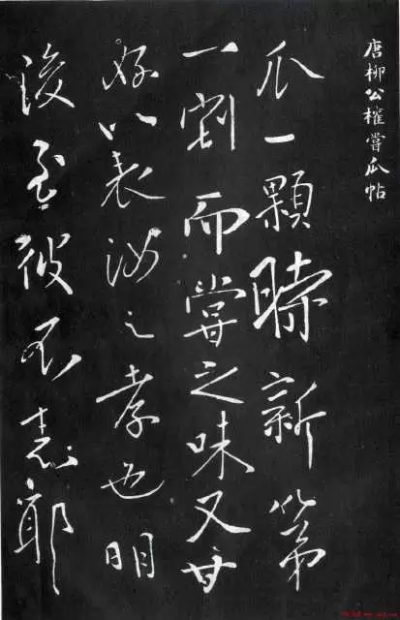 唐柳公權嘗瓜帖
瓜一顆時新第
一割而嘗之味又甘
好以表汝之孝也明
後至彼不